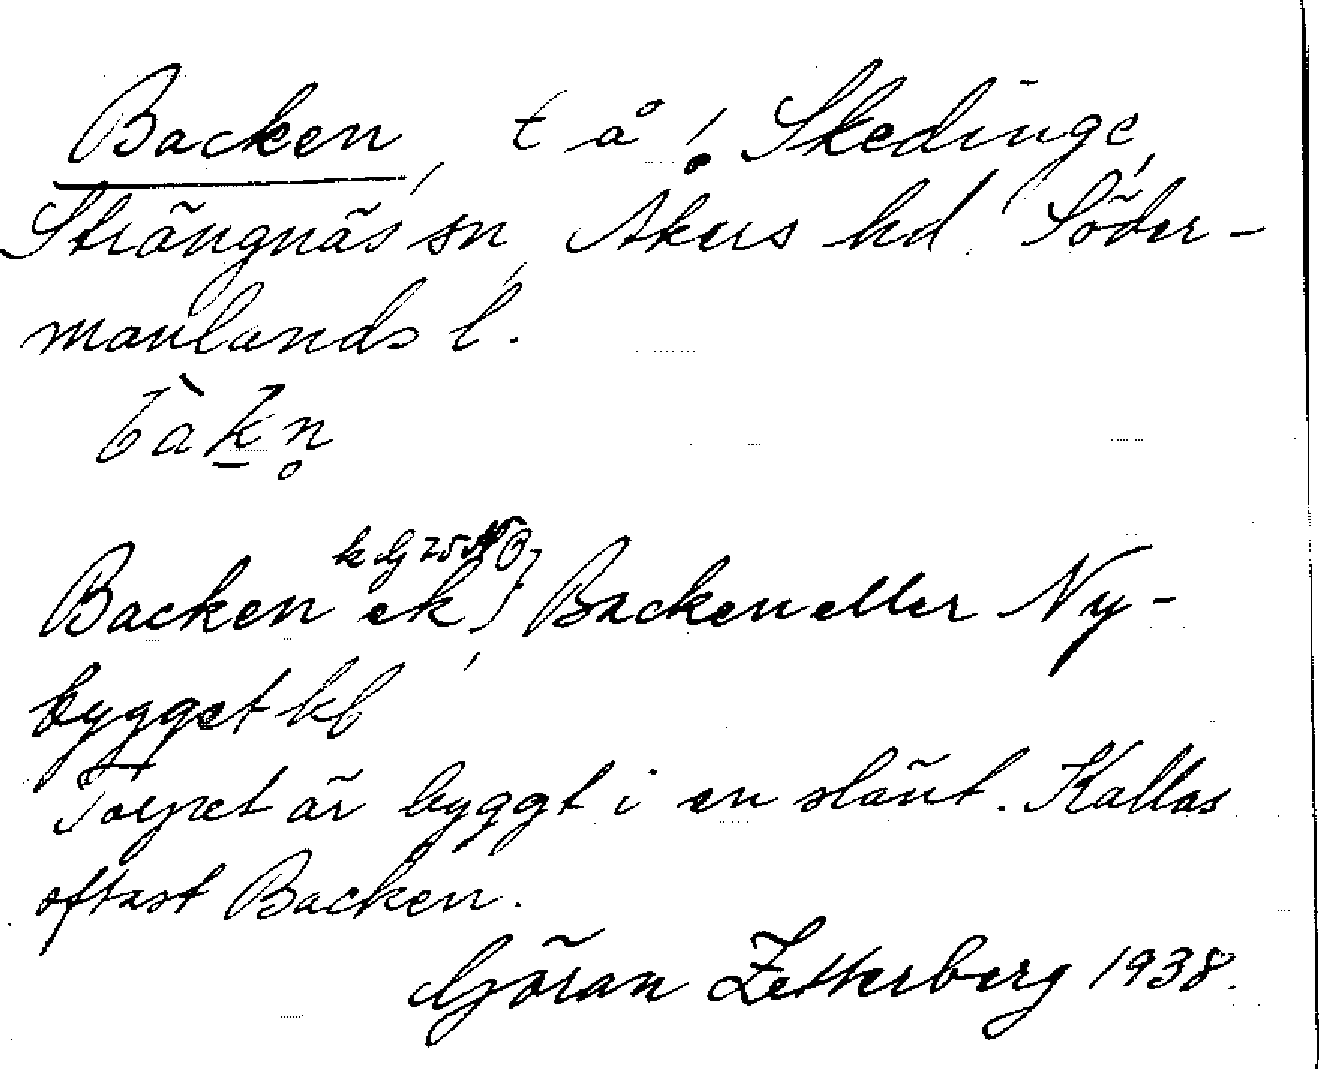 Backen, t å Skedinge,
Strängnäs sn, Åkers hd, Söder-
manlands l.
bàkn̥
Backen ek, Backen eller Ny-
bygget kb
Torpet är byggt i en slänt. Kallas
oftast Backen.
Göran Zetterberg 1938.